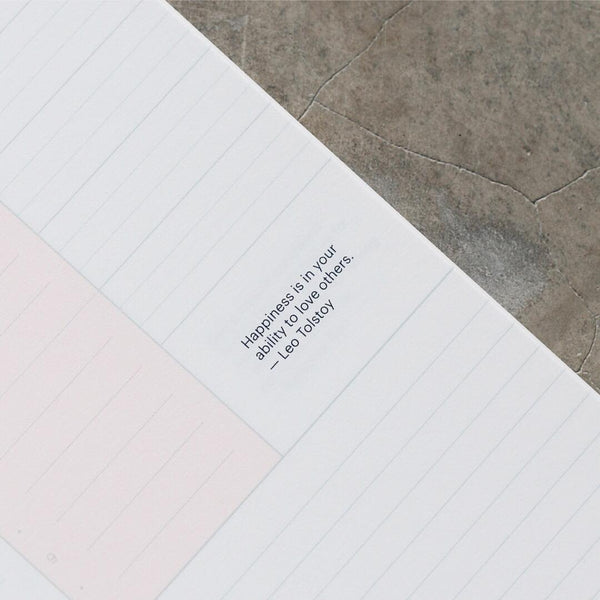 Happiness is in your
ability to love others.
— Leo Tolstoy